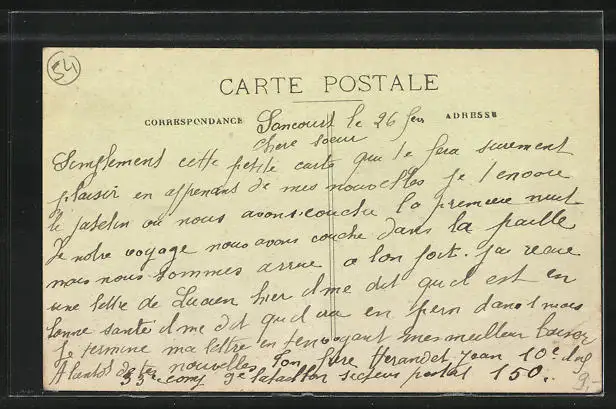 54
CARTE POSTALE
CORRESPONDANCE
ADRESSE
Sancourt le 26 fev
chere soeur
Simplement cette petite carte qui te fera surement
plaisir en apprenant de mes nouvelles je t'envoie
le patelin ou nous avons couche la premiere nuit
de notre voyage nous avons couche dans la paille
mais nous sommes arrive a bon port. j'ai recue
une lettre de Lucien hier il me dit qu'il est en
bonne sante il me dit qu'il va en perm dans 1 mois
je termine ma lettre en t'envoyant mes meilleur baiser
A bientot de tes nouvelles Ton frere Jean 10e
35e comp 9e bataillon secteur postal 150.
9.-